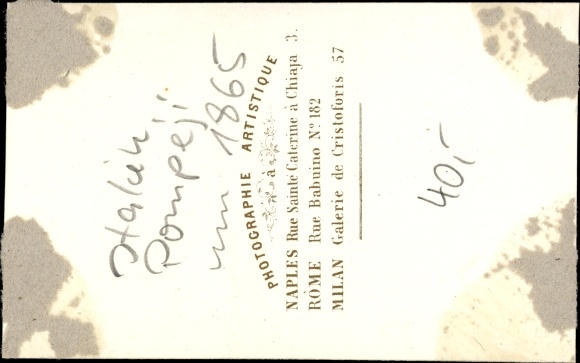 Italien
Pompeji
um 1865
PHOTOGRAPHIE ARTISTIQUE
à
NAPLES Rue Sainte Caterine à Chiaja 3.
RÔME Rue Babuino Nº 182
MILAN Galerie de Cristoforis 57
40,-